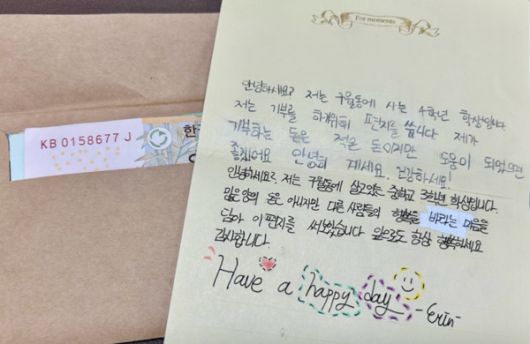 For moments
KB 0158677 J
한
안녕하세요? 저는 구월동에 사는 4학년 학생입니다.
저는 기부를 하기위해 편지를 씁니다 제가
기부하는 돈은 적은 돈이지만 도움이 되었으면
좋겠어요 안녕히 계세요. 건강하세요!
안녕하세요. 저는 구월동에 살고있는 중학교 3학년 학생입니다.
많은양의 돈은 아니지만 다른 사람들의 행복을 바라는 마음을
담아 이 편지를 써보았습니다 앞으로도 항상 행복하세요
감사합니다.
Have a happy day -Erin-